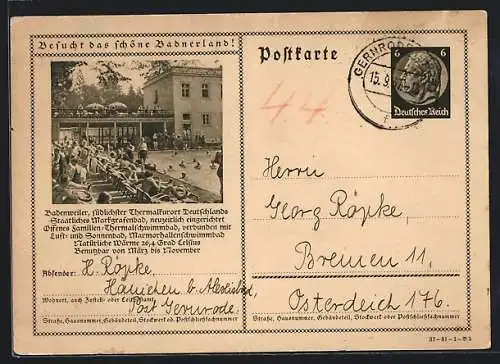 Besucht das schöne Badnerland!
Badenweiler, südlichster Thermalkurort Deutschlands
Staatliches Markgrafenbad, neuzeitlich eingerichtet
Offenes Familien-Thermalschwimmbad, verbunden mit
Luft- und Sonnenbad, Marmorhallenschwimmbad
Natürliche Wärme 26,4 Grad Celsius
Benutzbar von März bis November
Absender: H. Röpke,
Hänichen b.
Wohnort, auch Zustell- oder Leitpostamt
Post Gernrode.
Straße, Hausnummer, Gebäudeteil, Stockwerk od. Postschließfachnummer
Postkarte
GERNRODE
15.9.
6 6
Deutsches Reich
44
Herrn
Georg Röpke,
Bremen 11,
Osterdeich 176.
Straße, Hausnummer, Gebäudeteil, Stockwerk oder Postschließfachnummer